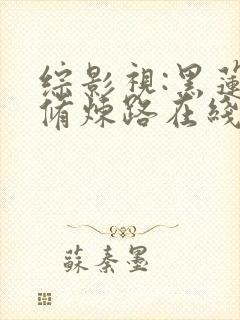 綜影視:黑蓮
脩煉路在綫
蘇秦墨